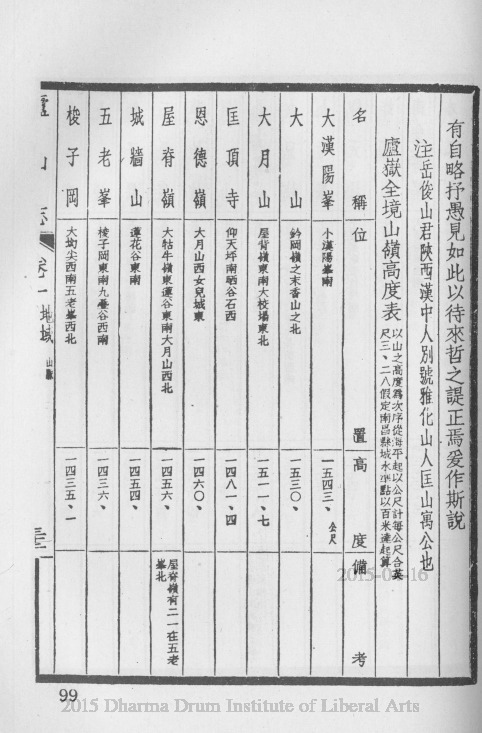 有自略抒愚見如此以待來哲之諟正焉爰作斯說
注岳俊山君陝西漢中人別號雅化山人匡山寓公也
廬嶽全境山嶺高度表 以山之高度爲次序從海平起以公尺計每公尺合英
尺三、二八假定南昌縣城水準點以百米達起算
名稱 位置 高度 備考
大漢陽峯 小漢陽峯南 一五四三、公尺
大山 鈴岡嶺之末香山之北 一五三〇、
大月山 屋脊嶺東南大校場東北 一五一一、七
匡頂寺 仰天坪南晒谷石西 一四八一、四
恩德嶺 大月山西女兒城東 一四六〇、
屋脊嶺 大牯牛嶺東蓮谷東南大月山西北 一四五六、 屋脊嶺有二一在五老
峯北
城牆山 蓮花谷東南 一四五四、
五老峯 梭子岡東南九疊谷西南 一四三六、
梭子岡 大坳尖西南五老峯西北 一四三五、一
廬山志 卷一 地域 山脈
99
2015 Dharma Drum Institute of Liberal Arts